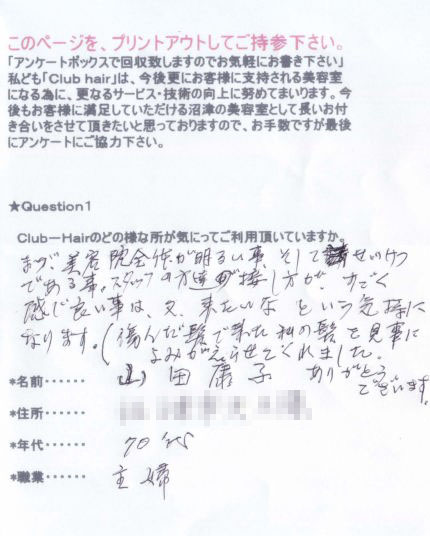 このページを、プリントアウトしてご持参下さい。
「アンケートボックスで回収致しますのでお気軽にお書き下さい」
私ども「Club hair」は、今後更にお客様に支持される美容室
になる為に、更なるサービス・技術の向上に努めてまいります。今
後もお客様に満足していただける沼津の美容室として長いお付
き合いをさせて頂きたいと思っておりますので、お手数ですが最後
にアンケートにご協力下さい。
★Question1
Club－Hairのどの様な所が気にってご利用頂いていますか。
まづ美容院全体が明るい事、そしてせいけつ
である事。スタッフの方達の接し方が、すごく
感じ良い事は、又、来たいな という気持に
なります。(傷んだ髪で来た私の髪を見事に
よみがえらせてくれました。
ありがとう
ございます。
*名前‥‥‥ 山田康子
*住所‥‥‥
*年代‥‥‥ 70代
*職業‥‥‥ 主婦